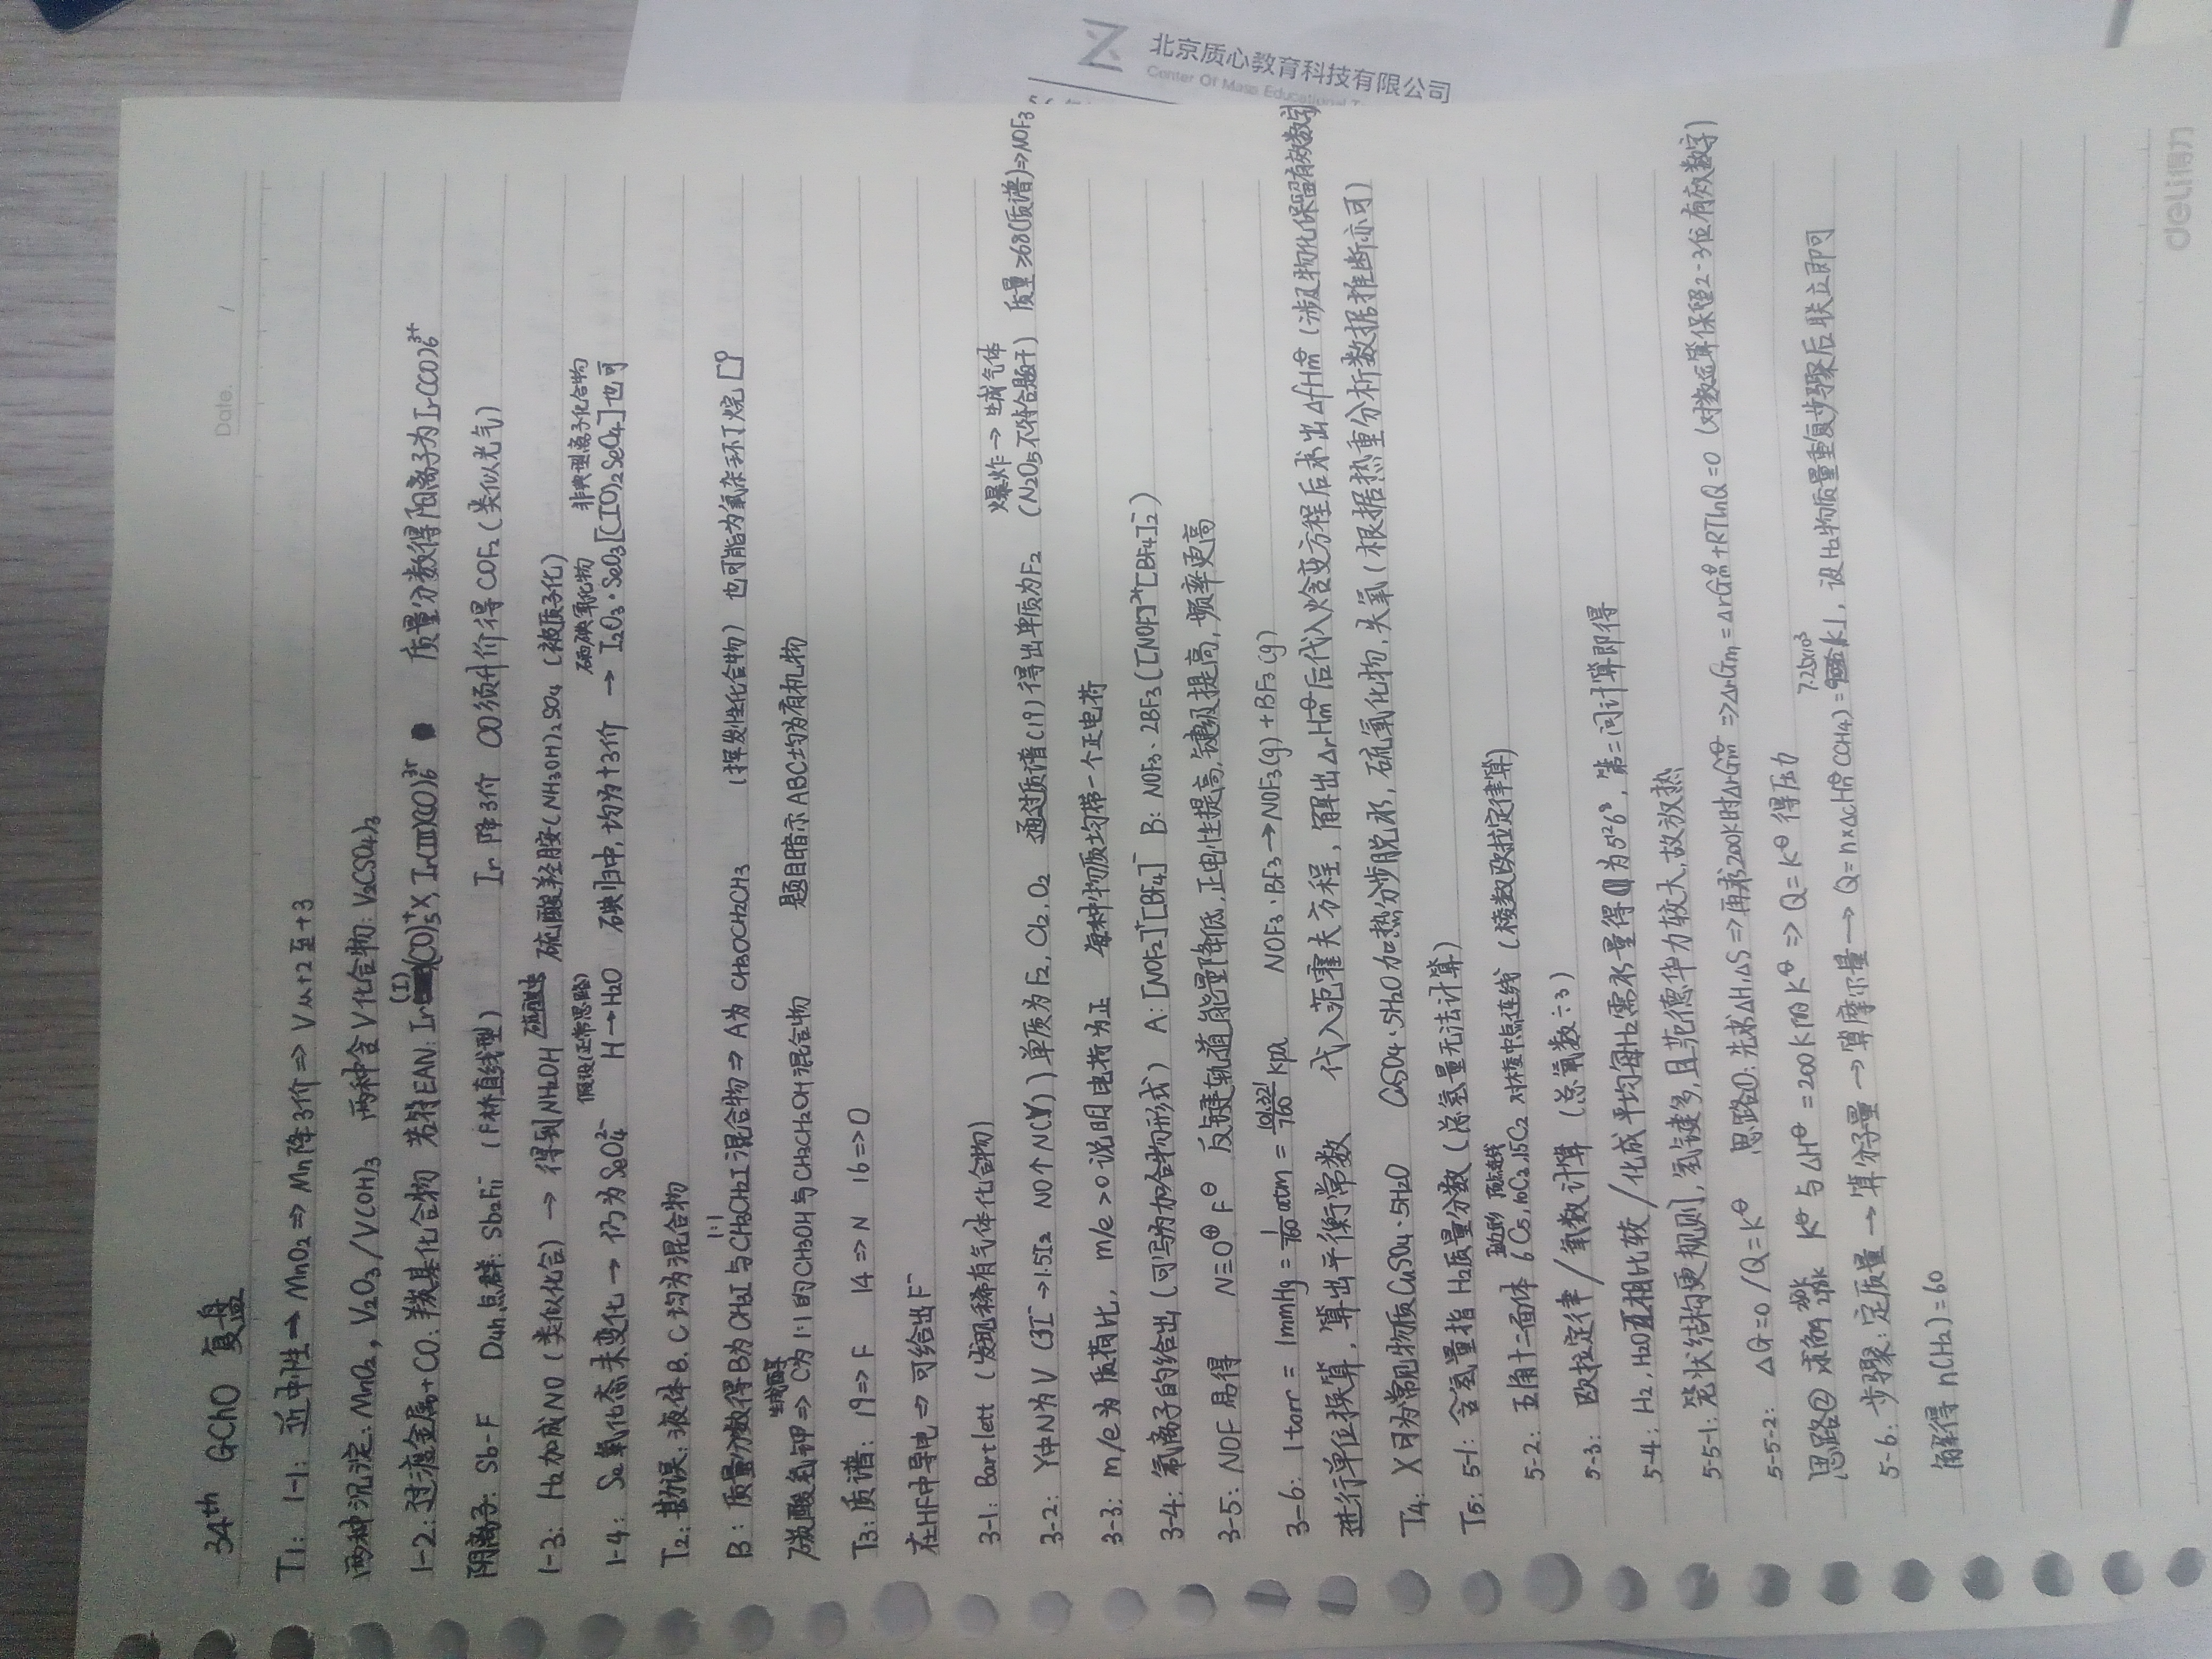 北京质心教育科技有限公司
Center Of Mass Educational
Date. /
34th GChO 复盘
T1: 1-1: 近中性 → MnO2 => Mn降3价 => V从+2至+3
两种沉淀: MnO2, V2O3/V(OH)3 两种含V化合物: V2(SO4)3
1-2: 过渡金属+CO: 羰基化合物 若符EAN: Ir(I)(CO)5+X, Ir(III)(CO)6 3+ 质量分数得阳离子为Ir(CO)6 3+
阴离子: Sb-F D4h点群: Sb2F11- (F桥直线型) Ir降3价 CO须升价得COF2(类似光气)
1-3: H2加成NO (类似化合) → 得到NH2OH 硫酸羟胺(NH3OH)2SO4 (被质子化)
假设(正常思路) 硒碘氧化物 非典型离子化合物
1-4: Se氧化态未变化 → 仍为SeO4 2- H→H2O 碘归中, 均为+3价 → I2O3·SeO3 [(IO)2SeO4]也可
T2: 勘误: 液体B、C均为混合物
B: 质量分数得B为CH3I与CH3CH2I混合物 1:1 => A为CH3OCH2CH3 (挥发性化合物) 也可能为氧杂环丁烷
碳酸氢钾 生成醇 => C为1:1的CH3OH与CH3CH2OH混合物 题目暗示ABC均为有机物
T3: 质谱: 19=>F 14=>N 16=>O
在HF中导电 => 可给出F-
3-1: Bartlett (发现稀有气体化合物)
爆炸→生成气体
3-2: Y中N为V (3I- →1.5I2 NO个N(V)) 单质为F2, Cl2, O2 通过质谱(19)得出单质为F2 (N2O5不符合题干) 质量≥68(质谱)=>NOF3
3-3: m/e为质荷比, m/e>0说明电荷为正 每种物质均带一个正电荷
3-4: 氟离子的给出(可写为加合物形式) A: [NOF2]+[BF4]- B: NOF3·2BF3 ([NOF]2+[BF4]2-)
3-5: NOF易得 N≡O⊕ F⊖ 反键轨道能量降低, 正电性提高, 键级提高, 频率更高
3-6: 1torr = 1mmHg = 1/760 atm = 101.321/760 kPa NOF3·BF3 → NOF3(g)+BF3(g)
进行单位换算, 算出平衡常数 代入范霍夫方程, 解出ΔrHm⊖后代入焓变方程后求出ΔfHm⊖ (涉及物化保留有效数字)
T4: X可为常见物质CuSO4·5H2O CuSO4·5H2O加热分步脱水, 硫氧化物, 失氧(根据热重分析数据推断亦可)
T5: 5-1: 含氢量指H2质量分数(总氢量无法计算)
5-2: 五角十二面体 6C5, 10C2, 15C2 对棱中点连线 (棱数欧拉定律算)
5-3: 欧拉定律/氧数计算 (总氧数÷3)
5-4: H2, H2O互相比较/化成平均每H2需水量得为5^12 6^3, 第三问计算即得
5-5-1: 笼状结构更规则, 氢键多, 且范德华力较大, 故放热
5-5-2: ΔG=0/Q=K⊖ 思路①: 先求ΔH, ΔS => 再求200K时ΔrGm⊖ => ΔrGm = ΔrGm⊖+RTlnQ=0 (对数运算保留2-3位有效数字)
思路② 求 K⊖与ΔH⊖ = 200K的K⊖ => Q=K⊖ 得压力
5-6: 步骤: 定质量 → 算分子量 → 算摩尔量 → Q=n×ΔcHm⊖(CH4)=7.25×10³kJ, 设H2物质质量重复步骤后联立即可
解得n(H2)=60
deli得力